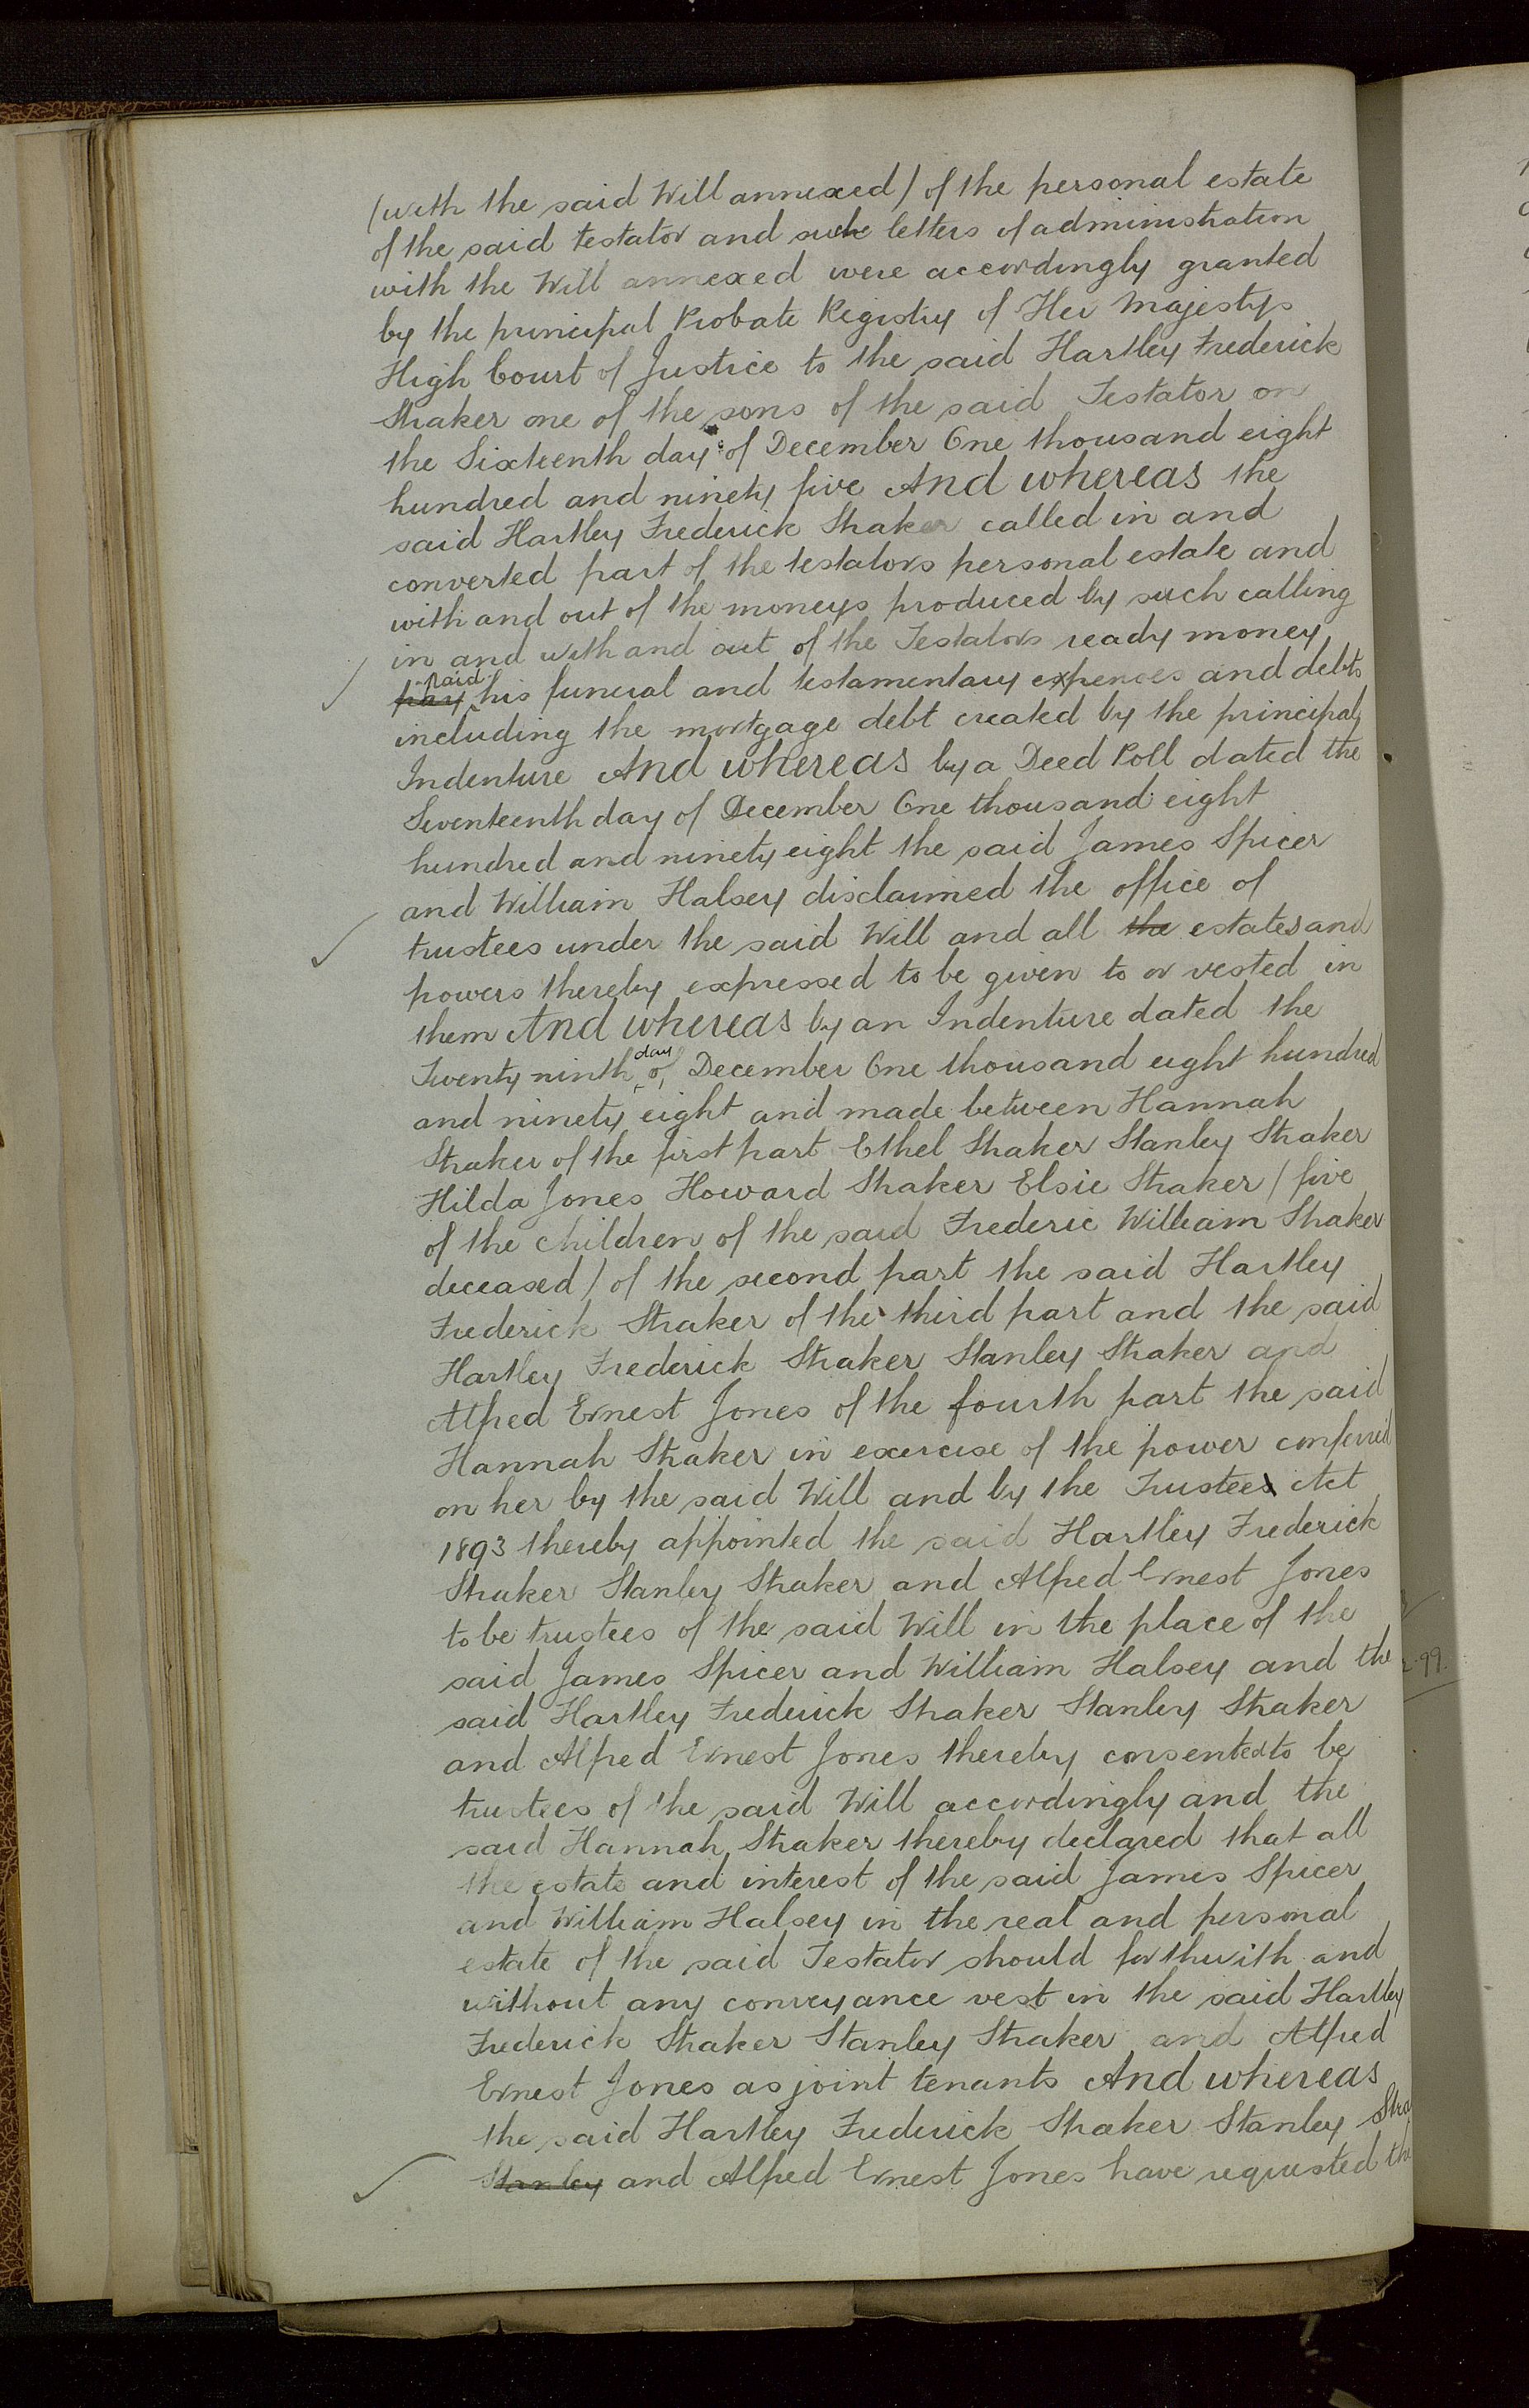 (with the said Will annexed) of the personal estate
of the said testator and such letters of administration
with the Will annexed were accordingly granted
by the principal Probate Registry of Her Majestys
High Court of Justice to the said Hartley Frederick
Straker one of the sons of the said Testator on
the Sixteenth day of December One thousand eight
hundred and ninety five And whereas the
said Hartley Frederick Straker called in and
converted part of the testators personal estate and
with and out of the moneys produced by such calling
in and with and out of the Testators ready money
pay paid his funeral and testamentary expenses and debts
including the mortgage debt created by the principal
Indenture And whereas by a Deed Poll dated the
Seventeenth day of December One thousand eight
hundred and ninety eight the said James Spicer
and William Halsey disclaimed the office of
trustees under the said Will and all the estates and
powers thereby expressed to be given to or vested in
them And whereas by an Indenture dated the
Twenty ninth day of December One thousand eight hundred
and ninety eight and made between Hannah
Straker of the first part Ethel Straker Stanley Straker
Hilda Jones Howard Straker Elsie Straker (five
of the children of the said Frederic William Straker
deceased) of the second part the said Hartley
Frederick Straker of the third part and the said
Hartley Frederick Straker Stanley Straker and
Alfred Ernest Jones of the fourth part the said
Hannah Straker in exercise of the power conferred
on her by the said Will and by the Trustee Act
1893 thereby appointed the said Hartley Frederick
Straker Stanley Straker and Alfred Ernest Jones
to be trustees of the said Will in the place of the
said James Spicer and William Halsey and the
said Hartley Frederick Straker Stanley Straker
and Alfred Ernest Jones thereby consented to be
trustees of the said Will accordingly and the
said Hannah Straker thereby declared that all
the estate and interest of the said James Spicer
and William Halsey in the real and personal
estate of the said Testator should forthwith and
without any conveyance vest in the said Hartley
Frederick Straker Stanley Straker and Alfred
Ernest Jones as joint tenants And whereas
the said Hartley Frederick Straker Stanley Stra
Stanley and Alfred Ernest Jones have requested the